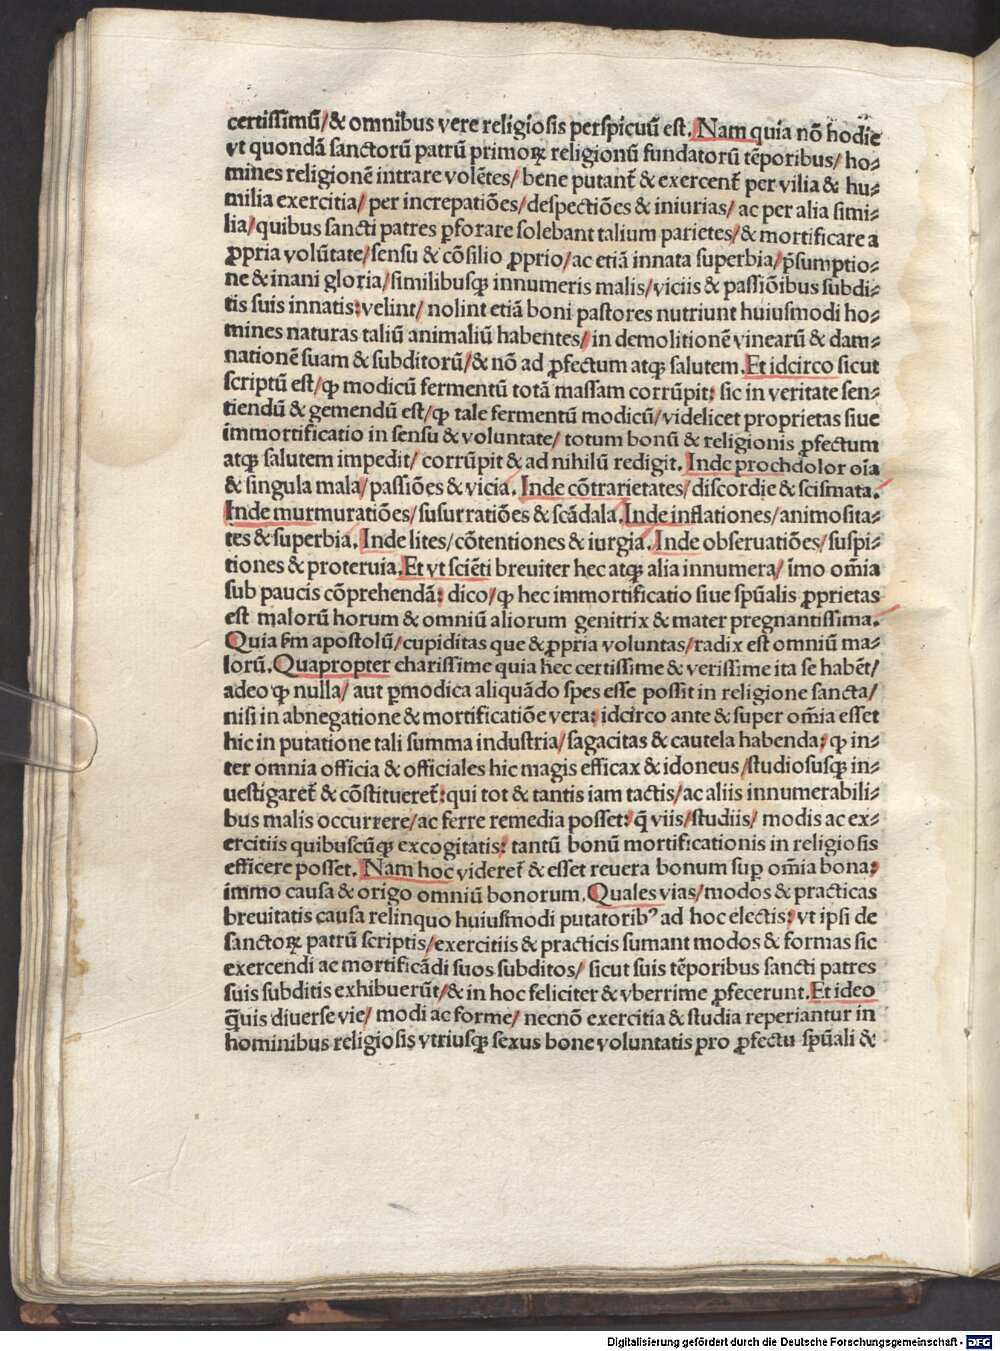 certissimū/& omnibus vere religiosis perspicuū est. Nam quia nō hodie
vt quondā sanctorū patrū primoꝝ religionū fundatorū tēporibus/ ho⸗
mines religionē intrare volētes/ bene putant̄ & exercent̄ per vilia & hu⸗
milia exercitia/ per increpatiōes/ despectiōes & iniurias/ ac per alia simi⸗
lia/ quibus sancti patres ꝑforare solebant talium parietes/ & mortificare a
ꝓpria volūtate/ sensu & cōsilio ꝓprio/ ac etiā innata superbia/ p̄sumptio⸗
ne & inani gloria/ similibusqꝫ innumeris malis/ viciis & passiōibus subdi⸗
tis suis innatis: velint/ nolint etiā boni pastores nutriunt huiusmodi ho⸗
mines naturas taliū animaliū habentes/ in demolitionē vinearū & dam⸗
nationē suam & subditorū/ & nō ad ꝓfectum atqꝫ salutem. Et idcirco sicut
scriptū est/ ꝙ modicū fermentū totā massam corrūpit: sic in veritate sen⸗
tiendū & gemendū est/ ꝙ tale fermentū modicū/ videlicet proprietas siue
immortificatio in sensu & voluntate/ totum bonū & religionis ꝓfectum
atqꝫ salutem impedit/ corrūpit & ad nihilū redigit. Inde prochdolor oīa
& singula mala/ passiōes & vicia. Inde cōtrarietates/ discordie & scismata.
Inde murmuratiōes/ susurratiōes & scādala. Inde inflationes/ animosita⸗
tes & superbia. Inde lites/ cōtentiones & iurgia. Inde obseruatiōes/ suspi⸗
tiones & proteruia. Et vt sciēti breuiter hec atqꝫ alia innumera/ īmo om̄ia
sub paucis cōprehendā: dico/ ꝙ hec immortificatio siue spūalis ꝓprietas
est malorū horum & omniū aliorum genitrix & mater pregnantissima.
Quia ẜm apostolū/ cupiditas que & ꝓpria voluntas/ radix est omniū ma⸗
lorū. Quapropter charissime quia hec certissime & verissime ita se habēt/
adeo ꝙ nulla/ aut ꝑmodica aliquādo spes esse possit in religione sancta/
nisi in abnegatione & mortificatiōe vera: idcirco ante & super om̄ia esset
hic in putatione tali summa industria/ sagacitas & cautela habenda: ꝙ in⸗
ter omnia officia & officiales hic magis efficax & idoneus/ studiosusqꝫ in⸗
uestigaret̄ & cōstitueret̄: qui tot & tantis iam tactis/ ac aliis innumerabili⸗
bus malis occurrere/ ac ferre remedia posset: q̄ viis/ studiis/ modis ac ex⸗
ercitiis quibuscūqꝫ excogitatis: tantū bonū mortificationis in religiosis
efficere posset. Nam hoc videret̄ & esset reuera bonum suꝑ om̄ia bona:
immo causa & origo omniū bonorum. Quales vias/ modos & practicas
breuitatis causa relinquo huiusmodi putatoribꝰ ad hoc electis: vt ipsi de
sanctoꝝ patrū scriptis/ exercitiis & practicis sumant modos & formas sic
exercendi ac mortificādi suos subditos/ sicut suis tēporibus sancti patres
suis subditis exhibuerūt/ & in hoc feliciter & vberrime ꝓfecerunt. Et ideo
q̄uis diuerse vie/ modi ac forme/ necnō exercitia & studia reperiantur in
hominibus religiosis vtriusqꝫ sexus bone voluntatis pro ꝓfectu spūali &
Digitalisierung gefördert durch die Deutsche Forschungsgemeinschaft - DFG